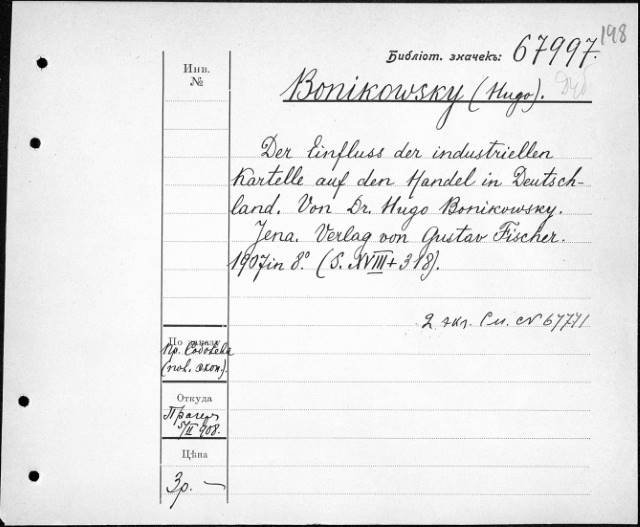 198
Библіот. значекъ: 67997.
Инв.
№
Bonikowsky (Hugo).
Дуб
Der Einfluss der industriellen
Kartelle auf den Handel in Deutsch-
land. Von Dr. Hugo Bonikowsky.
Jena. Verlag von Gustav Fischer.
1907 in 8° (S. XVIII + 318).
2 экз. См. № 67771
По заказу
Пр. Соболева
(пол. экон.).
Откуда
Прагеръ
5/II 908.
Цѣна
3р. —